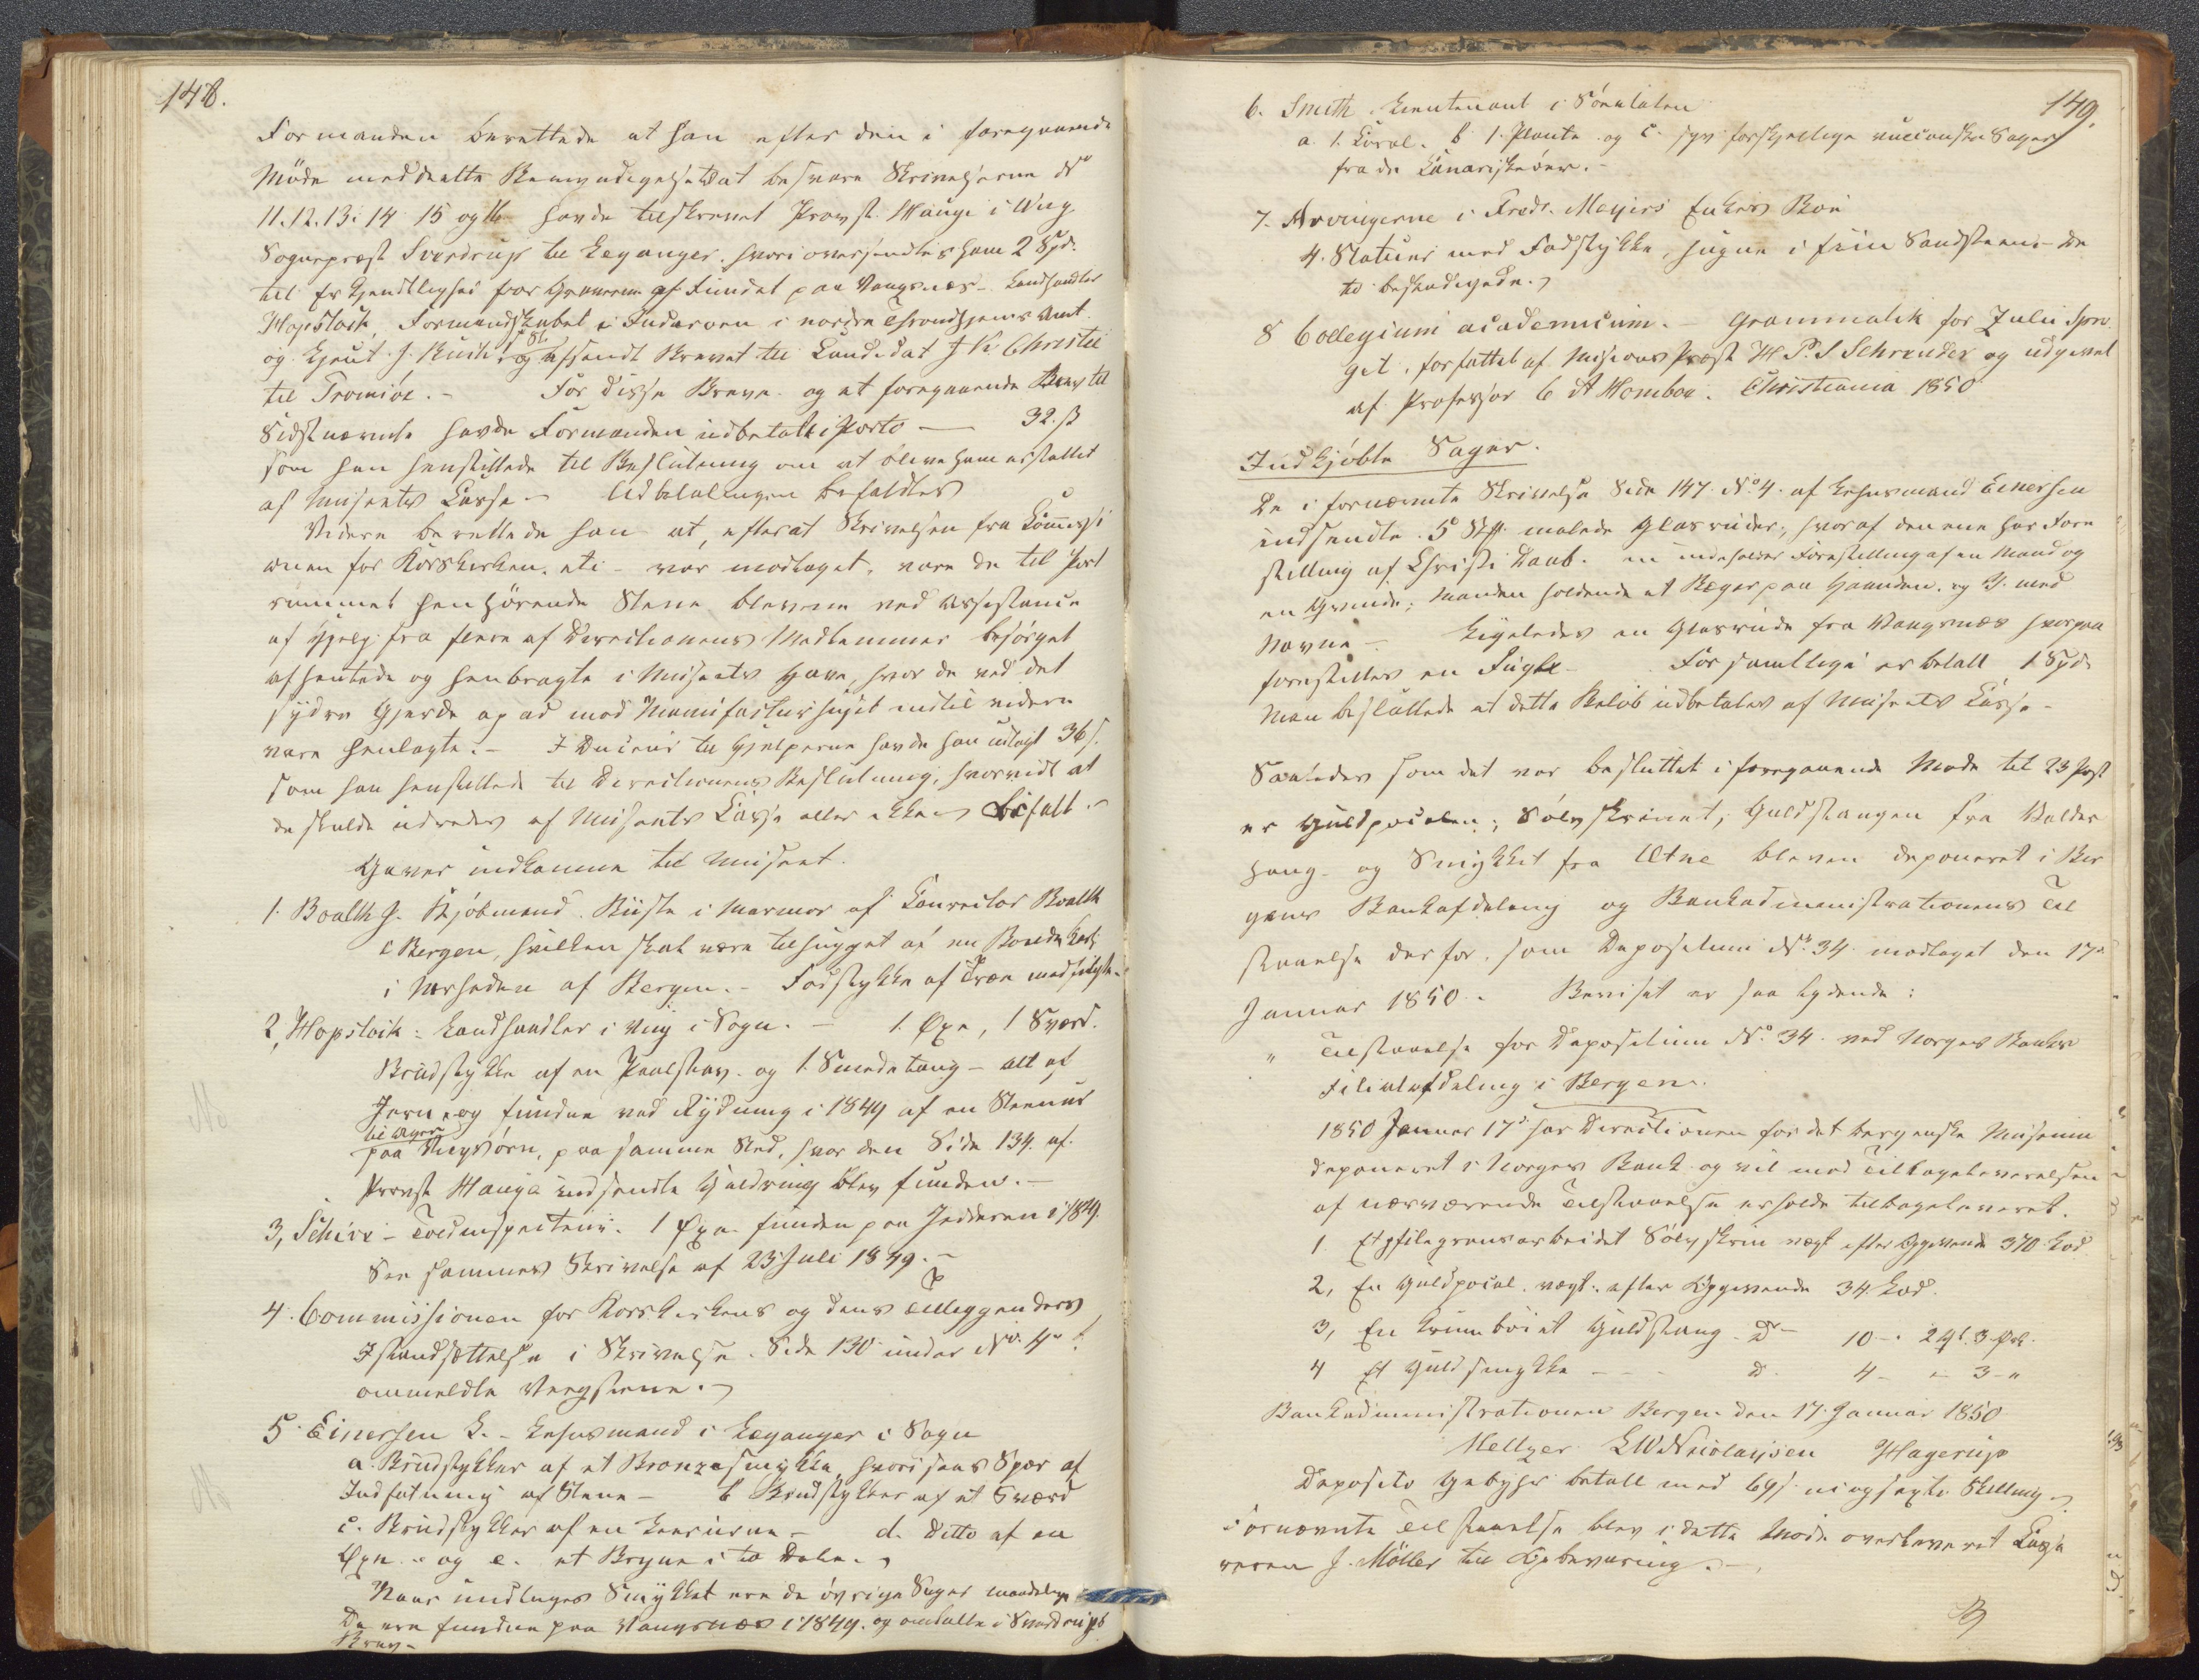 148.
Formanden berettede at han efter den i foregaaende
Møde meddeelte Bemyndigelse at besvare Skrivelserne No
11. 12. 13. 14 15 og 16 havde tilskrevet Provst Hauge i Wiig
Sognepræst Sverdrup til Leganger, hvori oversendtes ham 2 Spd.
til Erkjendtlighed for Fundet paa Vangsnæs – Landhandler
Hopstock, Formandskabet i Inderøen i nordre Throndhjems Amt
og Lieut. J. og afsendt Brevet til Candidat Christie
til Tromsöe. – For disse Breve og et foregaaende Brev til
Sidstnævnte havde Formanden udbetalt i Porto — 32. ß
som han henstillede til Beslutning om at blive ham erstattet
af Museets Casse – Udbetalingen befaldtes
Videre berettede han at, efterat Skrivelsen fra Commissi
onen for Korskirken etc – var modtaget, vare de til Port
rummet henhörende Stene blevne ved Assistance
af Hjelp fra flere af Directionens Medlemmer besörget
afhentede og henbragte i Museets Have, hvor de ved det
sydre Gjerde op ad mod Manufacturhuset indtil videre
vare henlagte. – I Douceur til Hjelperne havde han udlagt 36 ß.
som han henstillede til Directionens Beslutning, hvorvidt at
de skulde udredes af Museets Casse eller ikke – bifalt. –
Gaver indkomne til Museet.
1. Boalth J. Kjöbmand. Büste i Marmor af Conrector Boalth
i Bergen, hvilken skal være tilhugget af en Bonde Karl
i Nærheden af Bergen. – Fodstykke af Træe medfulgte.
2, Hopstock: Landhandler i Viig i Sogn. – 1. Öxe, 1 Sværd.
Brudstykke af en Paalstav og 1. Smedetang – alt af
Jern og funden ved Rydning i 1849 af en Steenur
paa Viigsören, paa samme Sted, hvor den Side 134. af
Provst Hauge indsendte Guldring blev funden. –
3, Schive – Toldinspecteur. 1 Öxe funden paa Jedderen i 1849.
See sammes Skrivelse af 23 Juli 1849. –
4. Commissionen for Korskirkens og dens Tilleggenders
Istandsættelse i Skrivelse Side 130 under No 4
ommeldte Vægstene. –
5. Einersen L. – Lehnsmand i Leganger i Sogn
a. Brudstykker af et Bronzesmykke, hvori sees Spor af
Indfatning af Stene – b Brudstykker af et Sværd
c. Brudstykker af en Leerurne – d. Ditto af en
Öxe – og e. et Bryne i to Dele. –
Naar undtages Smykket ere de övrige Sager
De ere fundne paa Vangsnæs i 1849. og omtalte i Sverdrups
Brev –
149.
6. Smith. Lieutenant i Söeetaten
a. 1. Coral. b 1. Plante og c. syv forskjellige vulcanske Sager
fra de Canariske öer. –
7. Arvingerne i Fredr. Meyers Enkes Boe
4. Statuer med Fodstykke, hugne i fiin Sandsteen – de
to beskadigede. –
8 Collegium academicum. – Grammatik for Zulu Spro
get, forfattet af Missions Præst H. P. S Schreuder og udgivet
af Professor C A Holmboe. Christiania 1850
Indkjöbte Sager.
De i fornævnte Skrivelse Side 147. No 4. af Lehnsmand Einersen
indsendte. 5 Stk. malede Glasruder, hvoraf den ene har Fore
stilling af Christi Daab. en indeholder Forestilling af en Mand og
en Qvinde; Manden holdende et Bæger paa Haanden. og 3. med
Navne – Ligeledes en Glasrude fra Vangsnæs hvorpaa
forestilles en Fugle – For samtlige er betalt 1 Spd.
Man besluttede at dette Belöb udbetales af Museets Casse –
Saaledes som det var besluttet i foregaaende Möde til 23 Post
er Guldpocalen; Sölvskrinet, Guldstangen fra Balder
houg – og Smykket fra Etne bleven deponeret i Ber
gens Bankafdeling og Bankadministrationens Til
staaelse derfor, som Depositum No. 34. modtaget den 17de
Januar 1850. – Beviset er saa lydende:
" Tilstaaelse for Depositum No. 34. ved Norges Banks
Filialafdeling i Bergen.
1850 Januar 17de har Directionen for det bergenske Museum
deponeret i Norges Bank og vil mod Tilbageleverelsen
af nærværende Tilstaaelse erholde tilbageleveret.
1. Et filegransarbeidet Sölvskrin vægt efter Opgivende 370 Lod
2, En Guldpocal. vægt. efter Opgivende 34. Lod.
3, En krumböiet Guldstang – Do – 10 – 2 qt. 3 Ort.
4 Et Guldsmykke – – – Do 4 – – 3 – "
Bankadministrationen Bergen den 17. Januar 1850
Meltzer E W Nicolaysen Hagerup
Deposito Gebyhr betalt med 69 ß. ni og sexti Skilling. –
Fornævnte Tilstaaelse blev i dette Möde overleveret Casse
reren J. Möller til Opbevaring. –